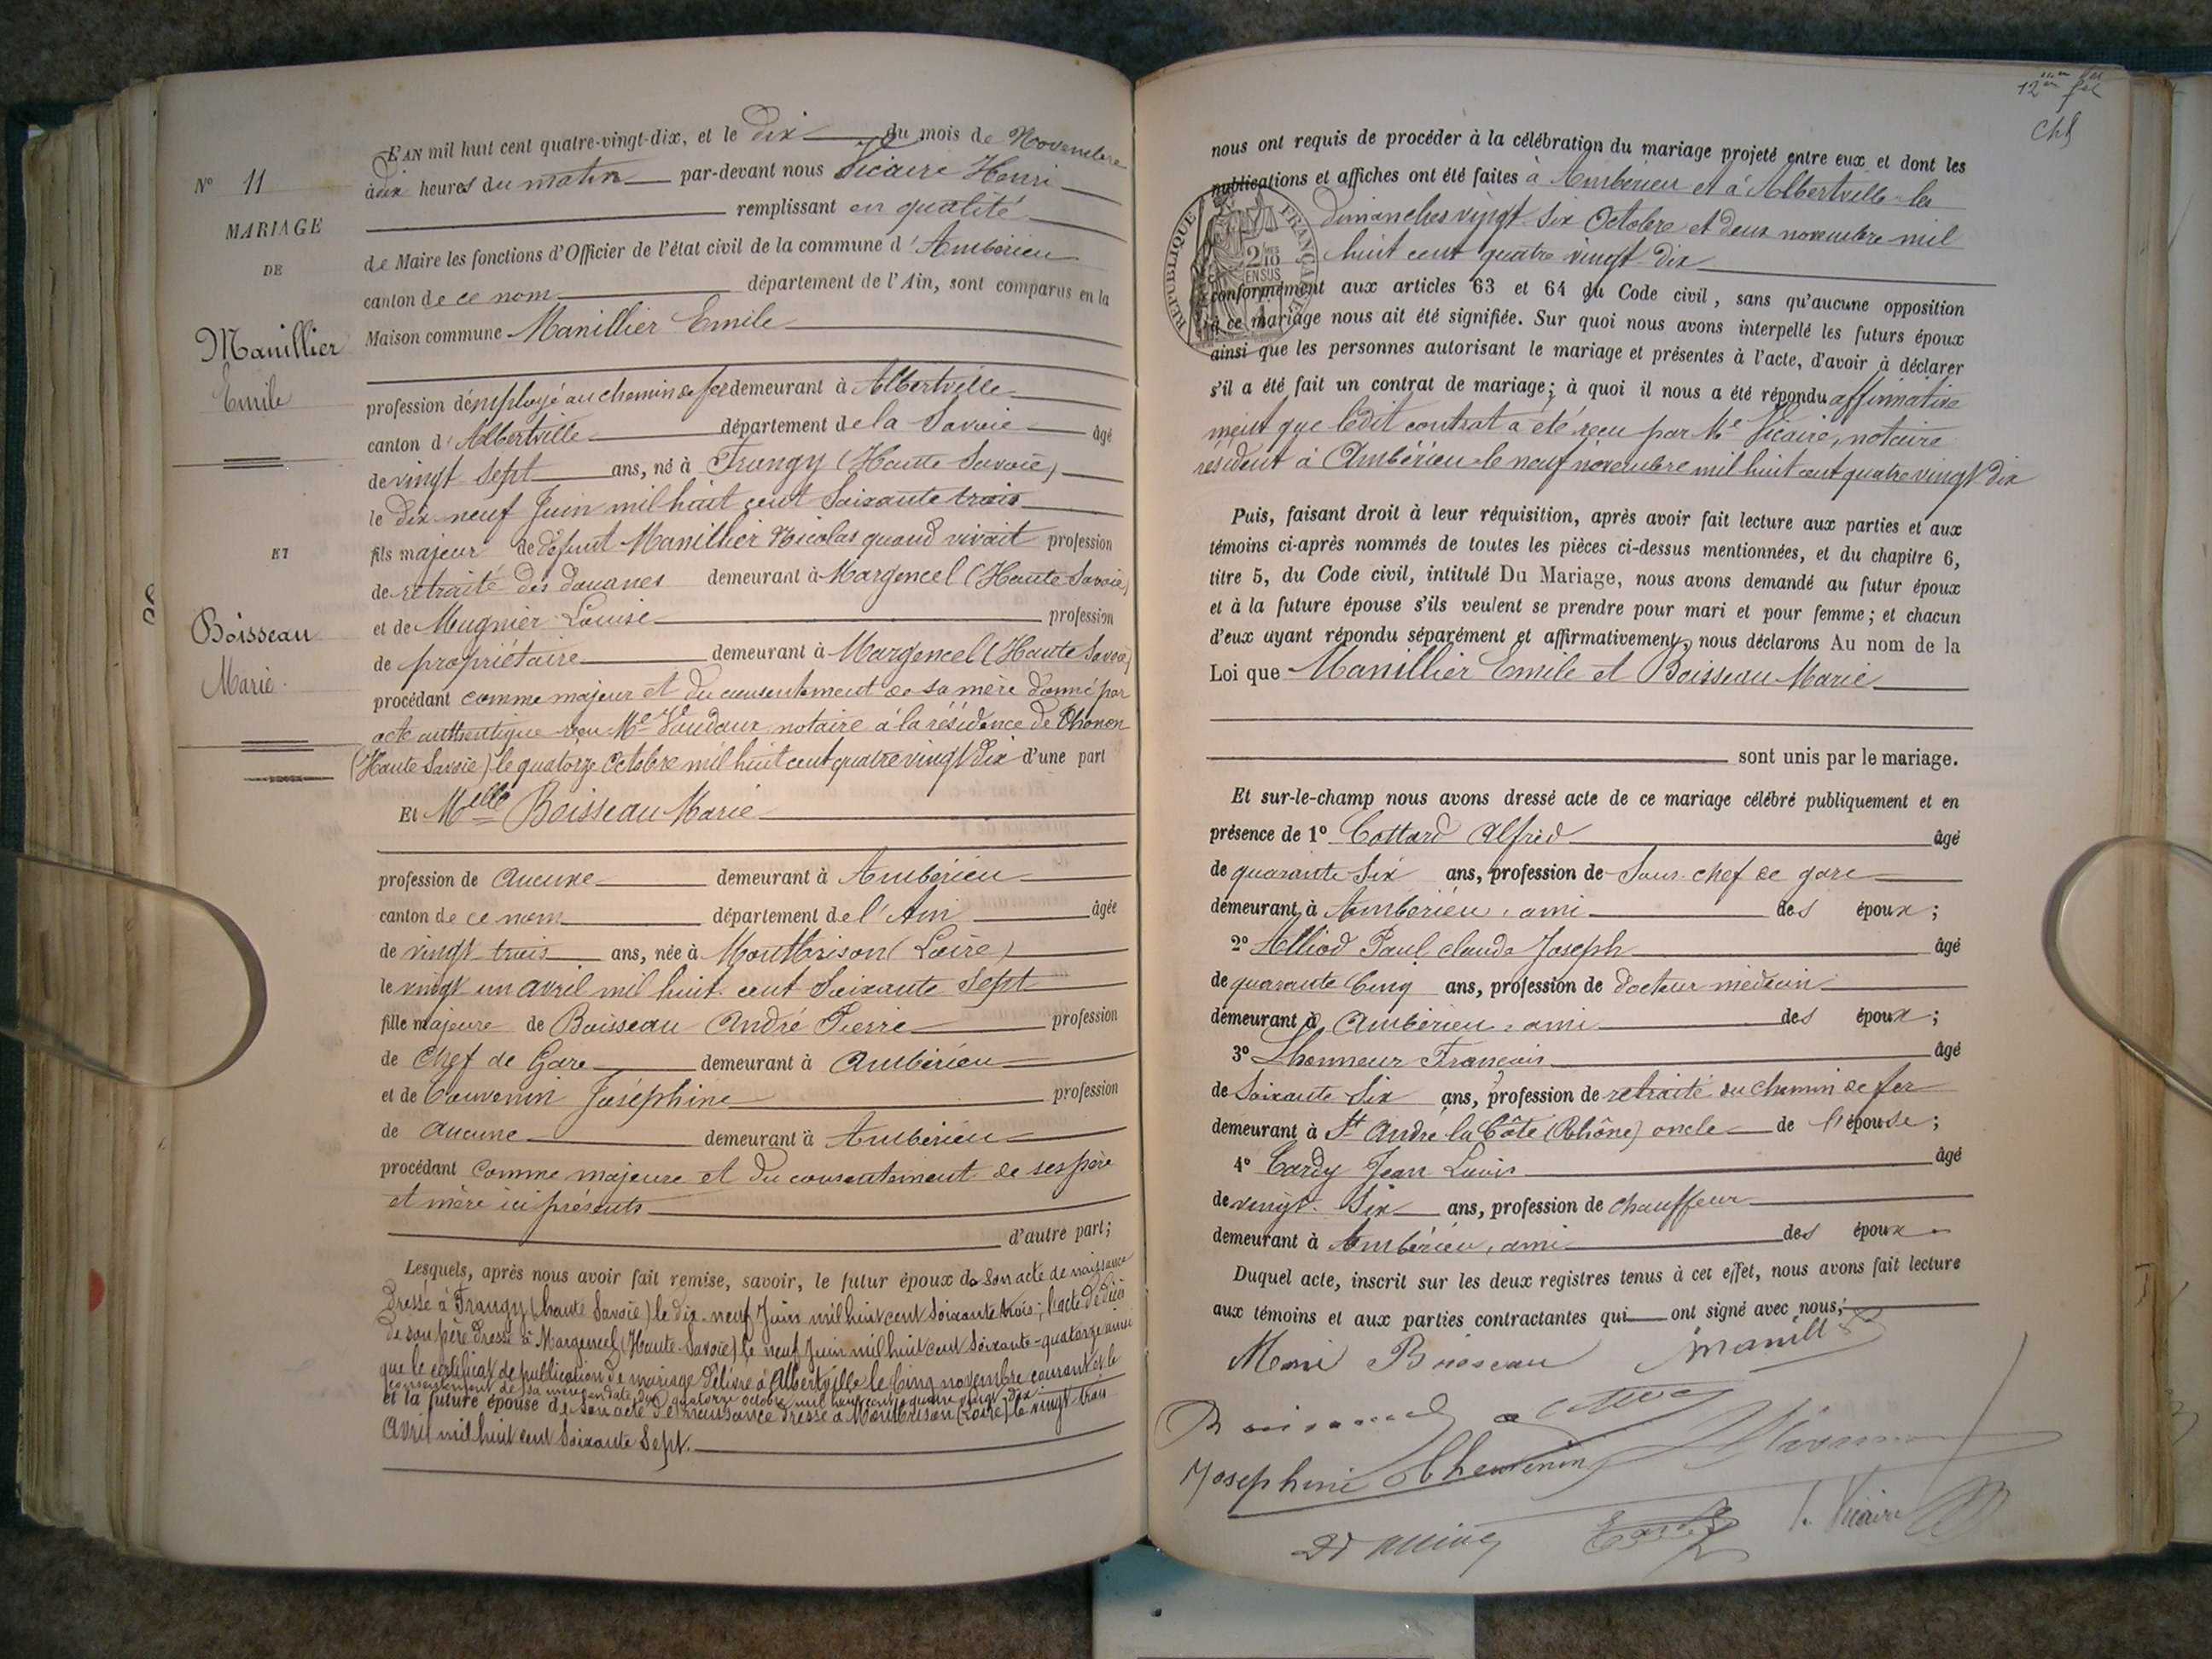 N° 11
MARIAGE
DE
Manillier
Emile
ET
Boisseau
Marie.
L'AN mil huit cent quatre-vingt-dix, et le dix du mois de Novembre
à dix heures du matin par-devant nous Vicaire Henri
remplissant en qualité
de Maire les fonctions d'Officier de l'état civil de la commune d'Ambérieu
canton de ce nom département de l'Ain, sont comparus en la
Maison commune Manillier Emile
profession d'employé au chemin de fer demeurant à Albertville
canton d'Albertville département de la Savoie âgé
de vingt sept ans, né à Frangy (Haute Savoie)
le dix neuf Juin mil huit cent soixante trois
fils majeur de défunt Manillier Nicolas quand vivait profession
de retraité des douanes demeurant à Margencel (Haute Savoie)
et de Mugnier Louise profession
de propriétaire demeurant à Margencel (Haute Savoie)
procédant comme majeur et du consentement de sa mère donné par
acte authentique reçu Me Vaudaux notaire à la résidence de Thonon
(Haute Savoie) le quatorze Octobre mil huit cent quatre vingt dix d'une part
Et Melle Boisseau Marie
profession de aucune demeurant à Ambérieu
canton de ce nom département de l'Ain âgée
de vingt trois ans, née à Montbrison (Loire)
le vingt un avril mil huit cent soixante sept
fille majeure de Boisseau André Pierre profession
de Chef de Gare demeurant à Ambérieu
et de Couvenin Joséphine profession
de aucune demeurant à Ambérieu
procédant comme majeure et du consentement de ses père
et mère ici présents
d'autre part;
Lesquels, après nous avoir fait remise, savoir, le futur époux de son acte de naissance
dressé à Frangy (haute Savoie) le dix-neuf Juin mil huit cent soixante trois; l'acte de décès
de son père dressé à Margencel (Haute-Savoie) le neuf Juin mil huit cent soixante-quatorze ainsi
que le certificat de publication de mariage délivré à Albertville le cinq novembre courant et le
consentement de sa mère en date du quatorze octobre mil huit cent quatre vingt dix
et la future épouse de son acte de naissance dressé à Montbrison (Loire) le vingt-trois
Avril mil huit cent soixante sept.
nous ont requis de procéder à la célébration du mariage projeté entre eux et dont les
publications et affiches ont été faites à Ambérieu et à Albertville les
dimanches vingt six Octobre et deux novembre mil
huit cent quatre vingt dix
RÉPUBLIQUE FRANÇAISE
2/10 EN SUS
conformément aux articles 63 et 64 du Code civil, sans qu'aucune opposition
à ce mariage nous ait été signifiée. Sur quoi nous avons interpellé les futurs époux
ainsi que les personnes autorisant le mariage et présentes à l'acte, d'avoir à déclarer
s'il a été fait un contrat de mariage; à quoi il nous a été répondu affirmative
ment que ledit contrat a été reçu par Me Vicaire, notaire
résident à Ambérieu le neuf novembre mil huit cent quatre vingt dix
Puis, faisant droit à leur réquisition, après avoir fait lecture aux parties et aux
témoins ci-après nommés de toutes les pièces ci-dessus mentionnées, et du chapitre 6,
titre 5, du Code civil, intitulé Du Mariage, nous avons demandé au futur époux
et à la future épouse s'ils veulent se prendre pour mari et pour femme; et chacun
d'eux ayant répondu séparément et affirmativement, nous déclarons Au nom de la
Loi que Manillier Emile et Boisseau Marie
sont unis par le mariage.
Et sur-le-champ nous avons dressé acte de ce mariage célébré publiquement et en
présence de 1° Cottard Alfred âgé
de quarante six ans, profession de Sous-chef de gare
demeurant à Ambérieu, ami des époux;
2° Alliod Paul claude Joseph âgé
de quarante Cinq ans, profession de docteur médecin
demeurant à Ambérieu, ami des époux;
3° Lhonneur François âgé
de Soixante six ans, profession de retraité du chemin de fer
demeurant à St André la Côte (Rhône) oncle de l'épouse;
4° Cardy Jean Louis âgé
de vingt-six ans, profession de chauffeur
demeurant à Ambérieu, ami des époux
Duquel acte, inscrit sur les deux registres tenus à cet effet, nous avons fait lecture
aux témoins et aux parties contractantes qui ont signé avec nous;
Marie Boisseau
Josephine
h. Vicaire